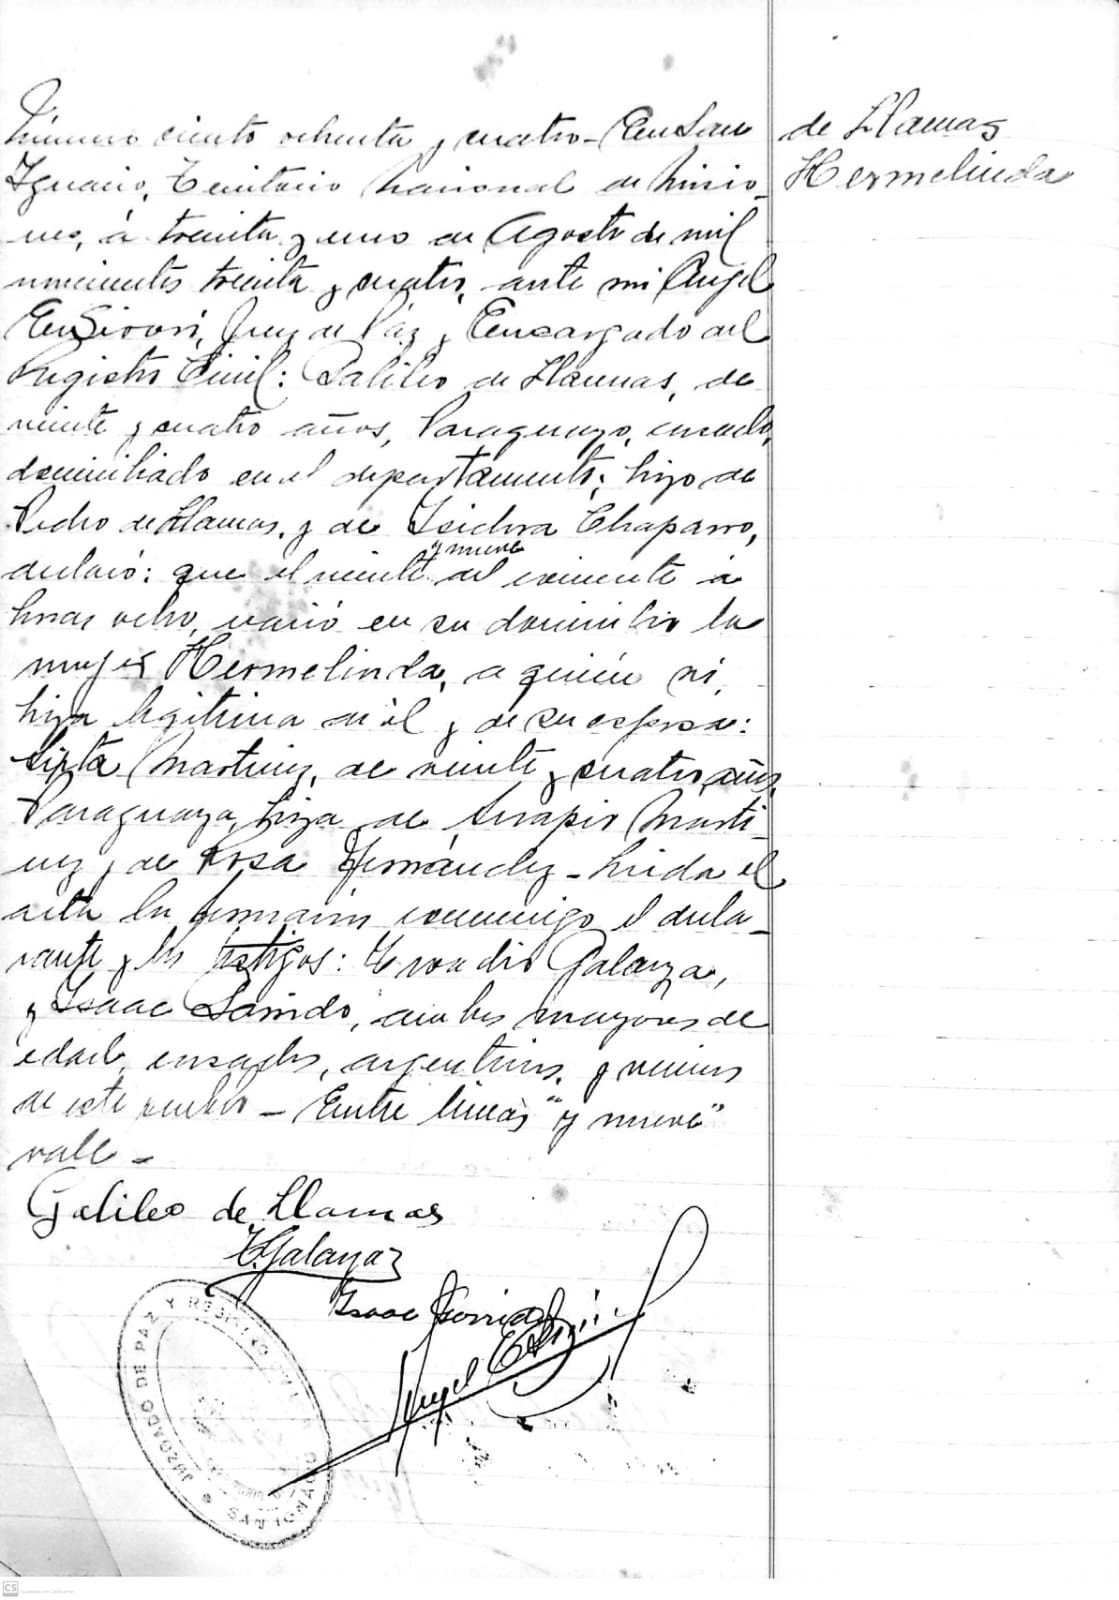 Número ciento ochenta y cuatro - En San
Ignacio, Territorio Nacional de Misio-
nes, á treinta y uno de Agosto de mil
novecientos treinta y cuatro, ante mi Angel
Juez de Páz y Encargado del
Registro Civil: Galileo de Llamas, de
veinte y cuatro años, Paraguayo, casado,
domiciliado en el departamento; hijo de
Pedro de Llamas, y de Isidora Chaparro,
declaró: que el veinte y nueve del corriente á
horas ocho, nació en su domicilio la
mujer Hermelinda, a quién ví,
hija legitima de él y de su esposa:
Sixta Martinez, de veinte y cuatro años,
Paraguaya, hija de Serapio Marti-
nez y de Rosa Hernández - Leida el
acta la firmaron conmigo el decla-
rante y los testigos: Galarza,
y Isaac ambos mayores de
edad, casados, argentinos, y vecinos
de este pueblo - Entre lineas "y nueve"
vale -
Galileo de Llamas
Galarza
Isaac
Angel
de Llamas
Hermelinda
JUZGADO DE PAZ Y REGISTRO CIVIL
SAN IGNACIO
CS